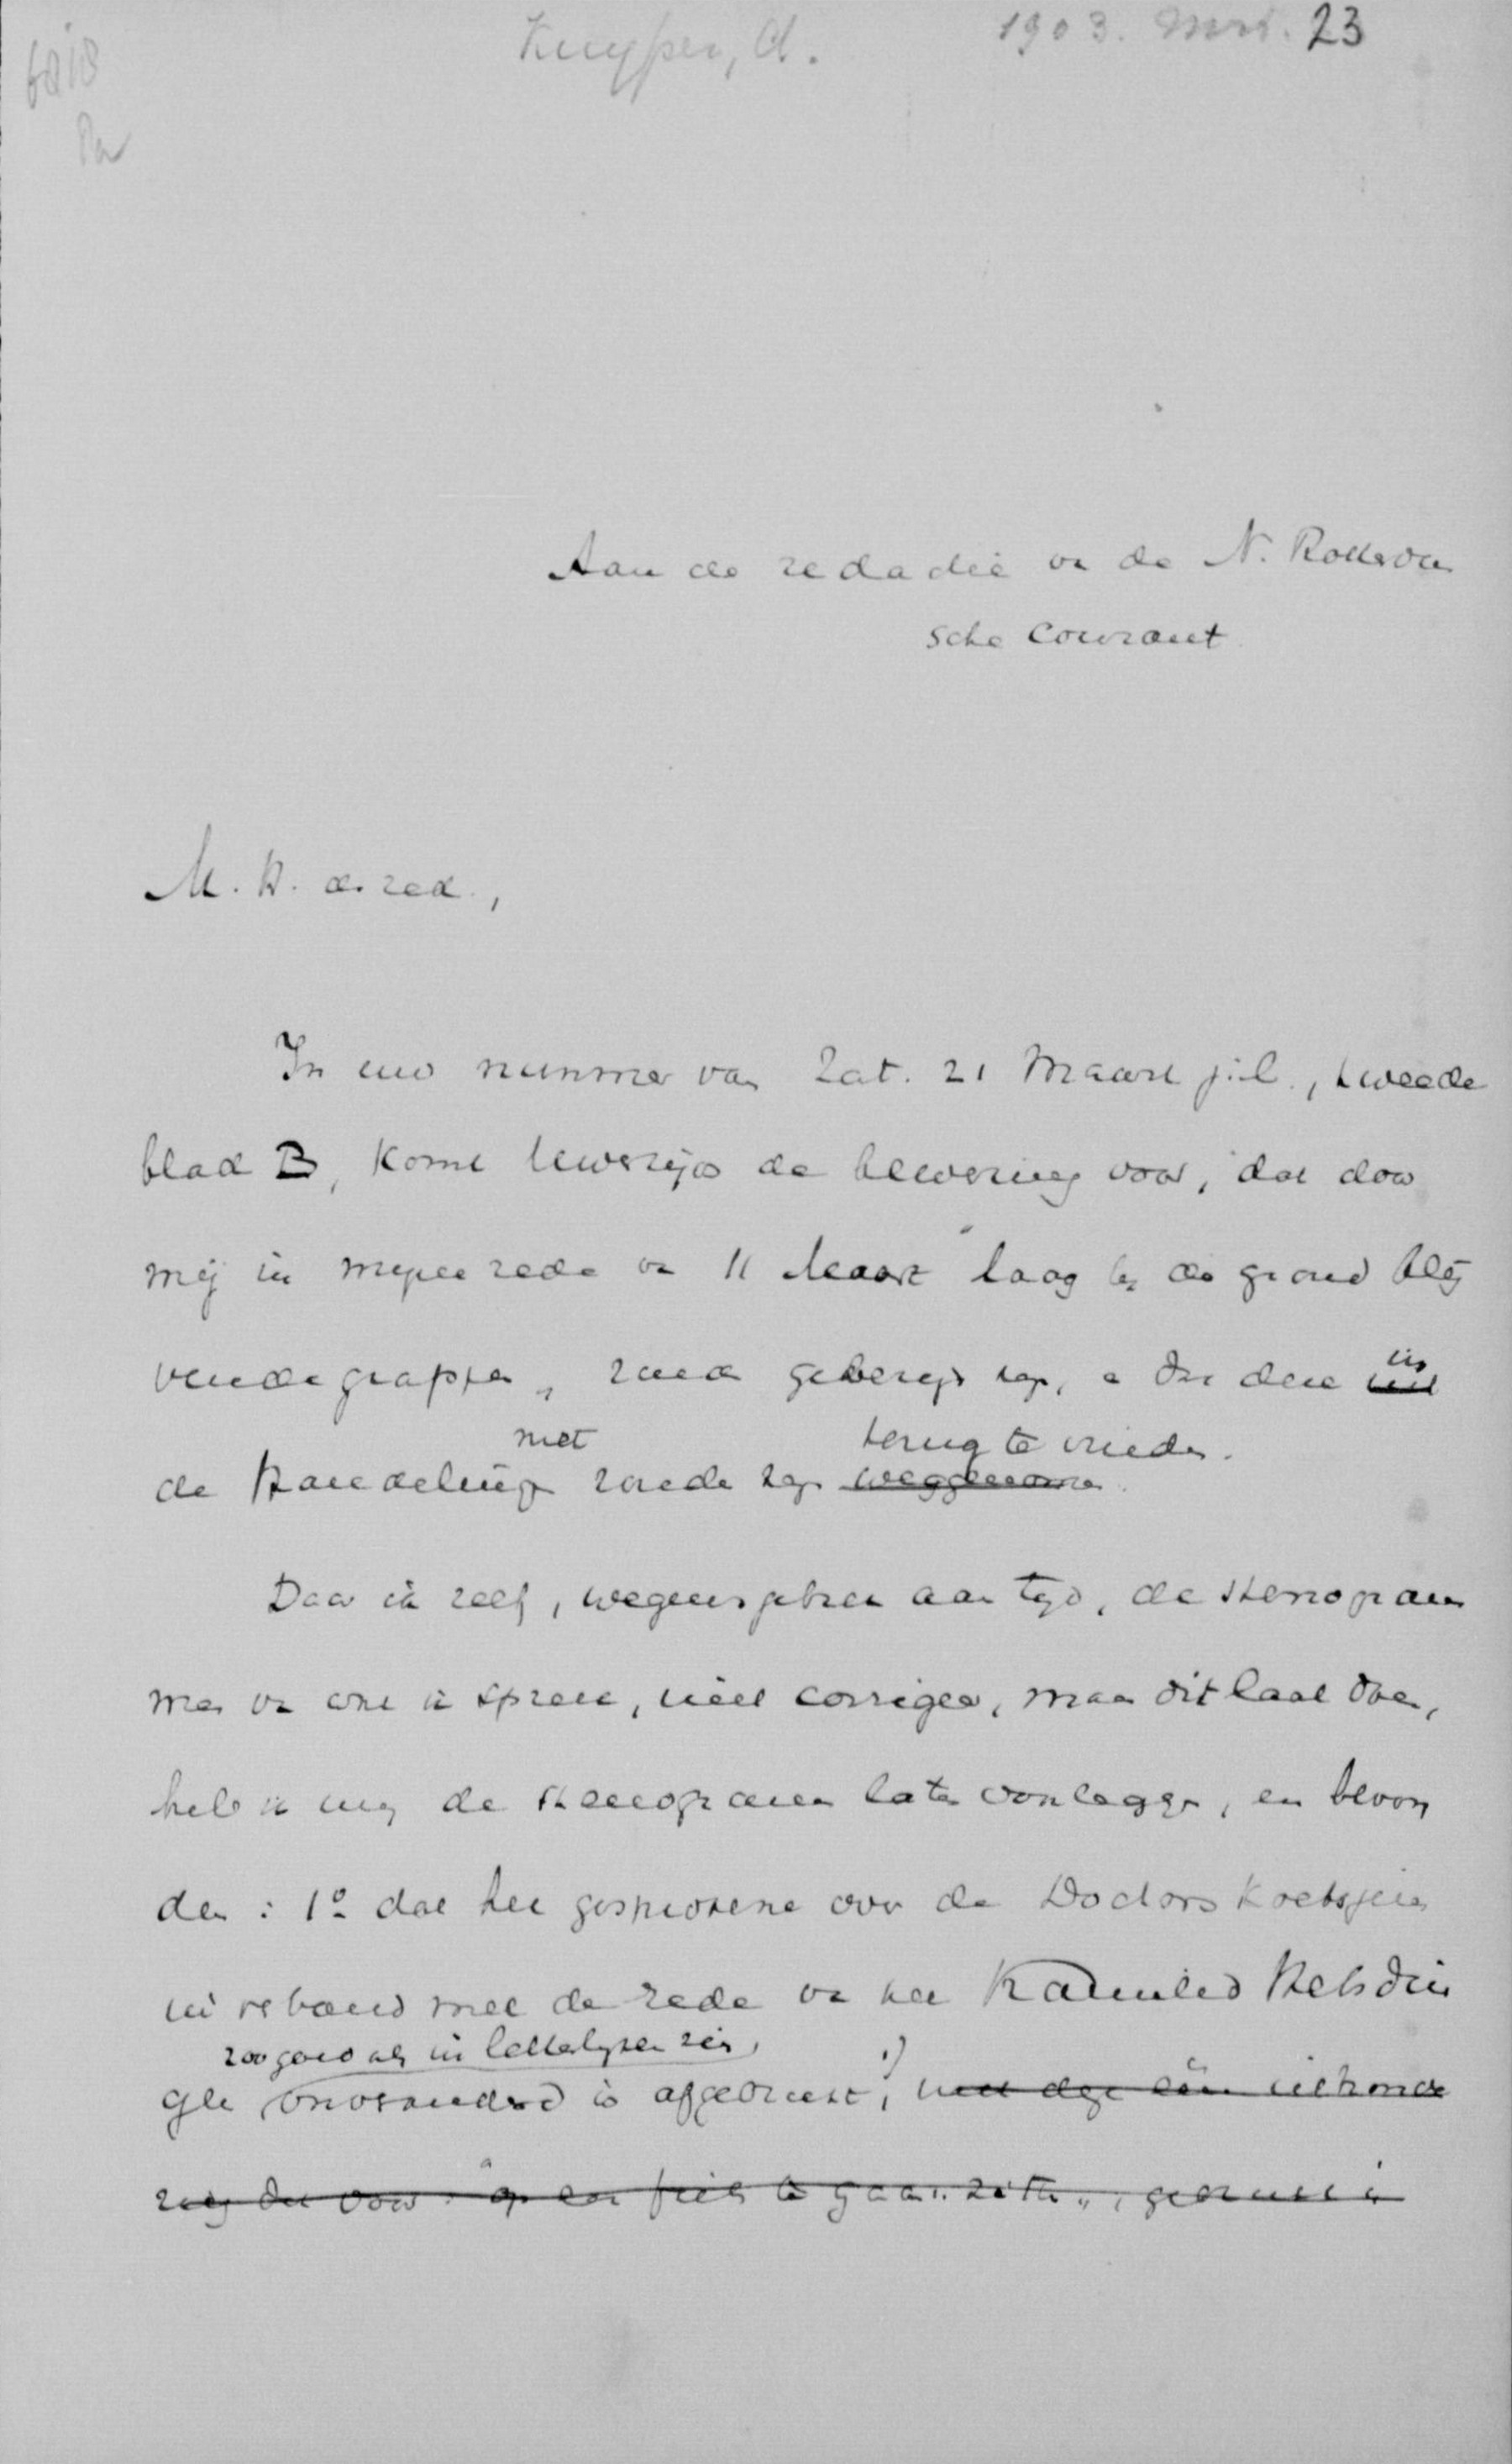 Kuyper, A. 1903. Mrt. 23
6818
Aan de redactie v. de N. Rotterdam
sche Courant
M. H. d. red.,
In uw nummer van Zat. 21 Maart j.l., tweede
blad B, komt terwijs de bewering voor, dat door
mij in mijne rede v. 11 Maart laag bij de grond blij
vende grappen, zouden gebezigd zijn, en dat deze in
de Handelingen niet zouden zijn terug te vinden.
Daar ik zelf, wegens gebrek aan tijd, de stenogram
men v. wat ik spreek, niet corrigeer, maar dit laat doen,
heb ik mij de stenogrammen laten voorleggen, en bevon
den: 1º dat het gesprokene over de Doctors koetsjes
in verband met de rede v. het Kamerlid Helsdin
gen zoo goed als in letterlijken zin, onveranderd is afgedrukt;
op een fiets te gaan zitten